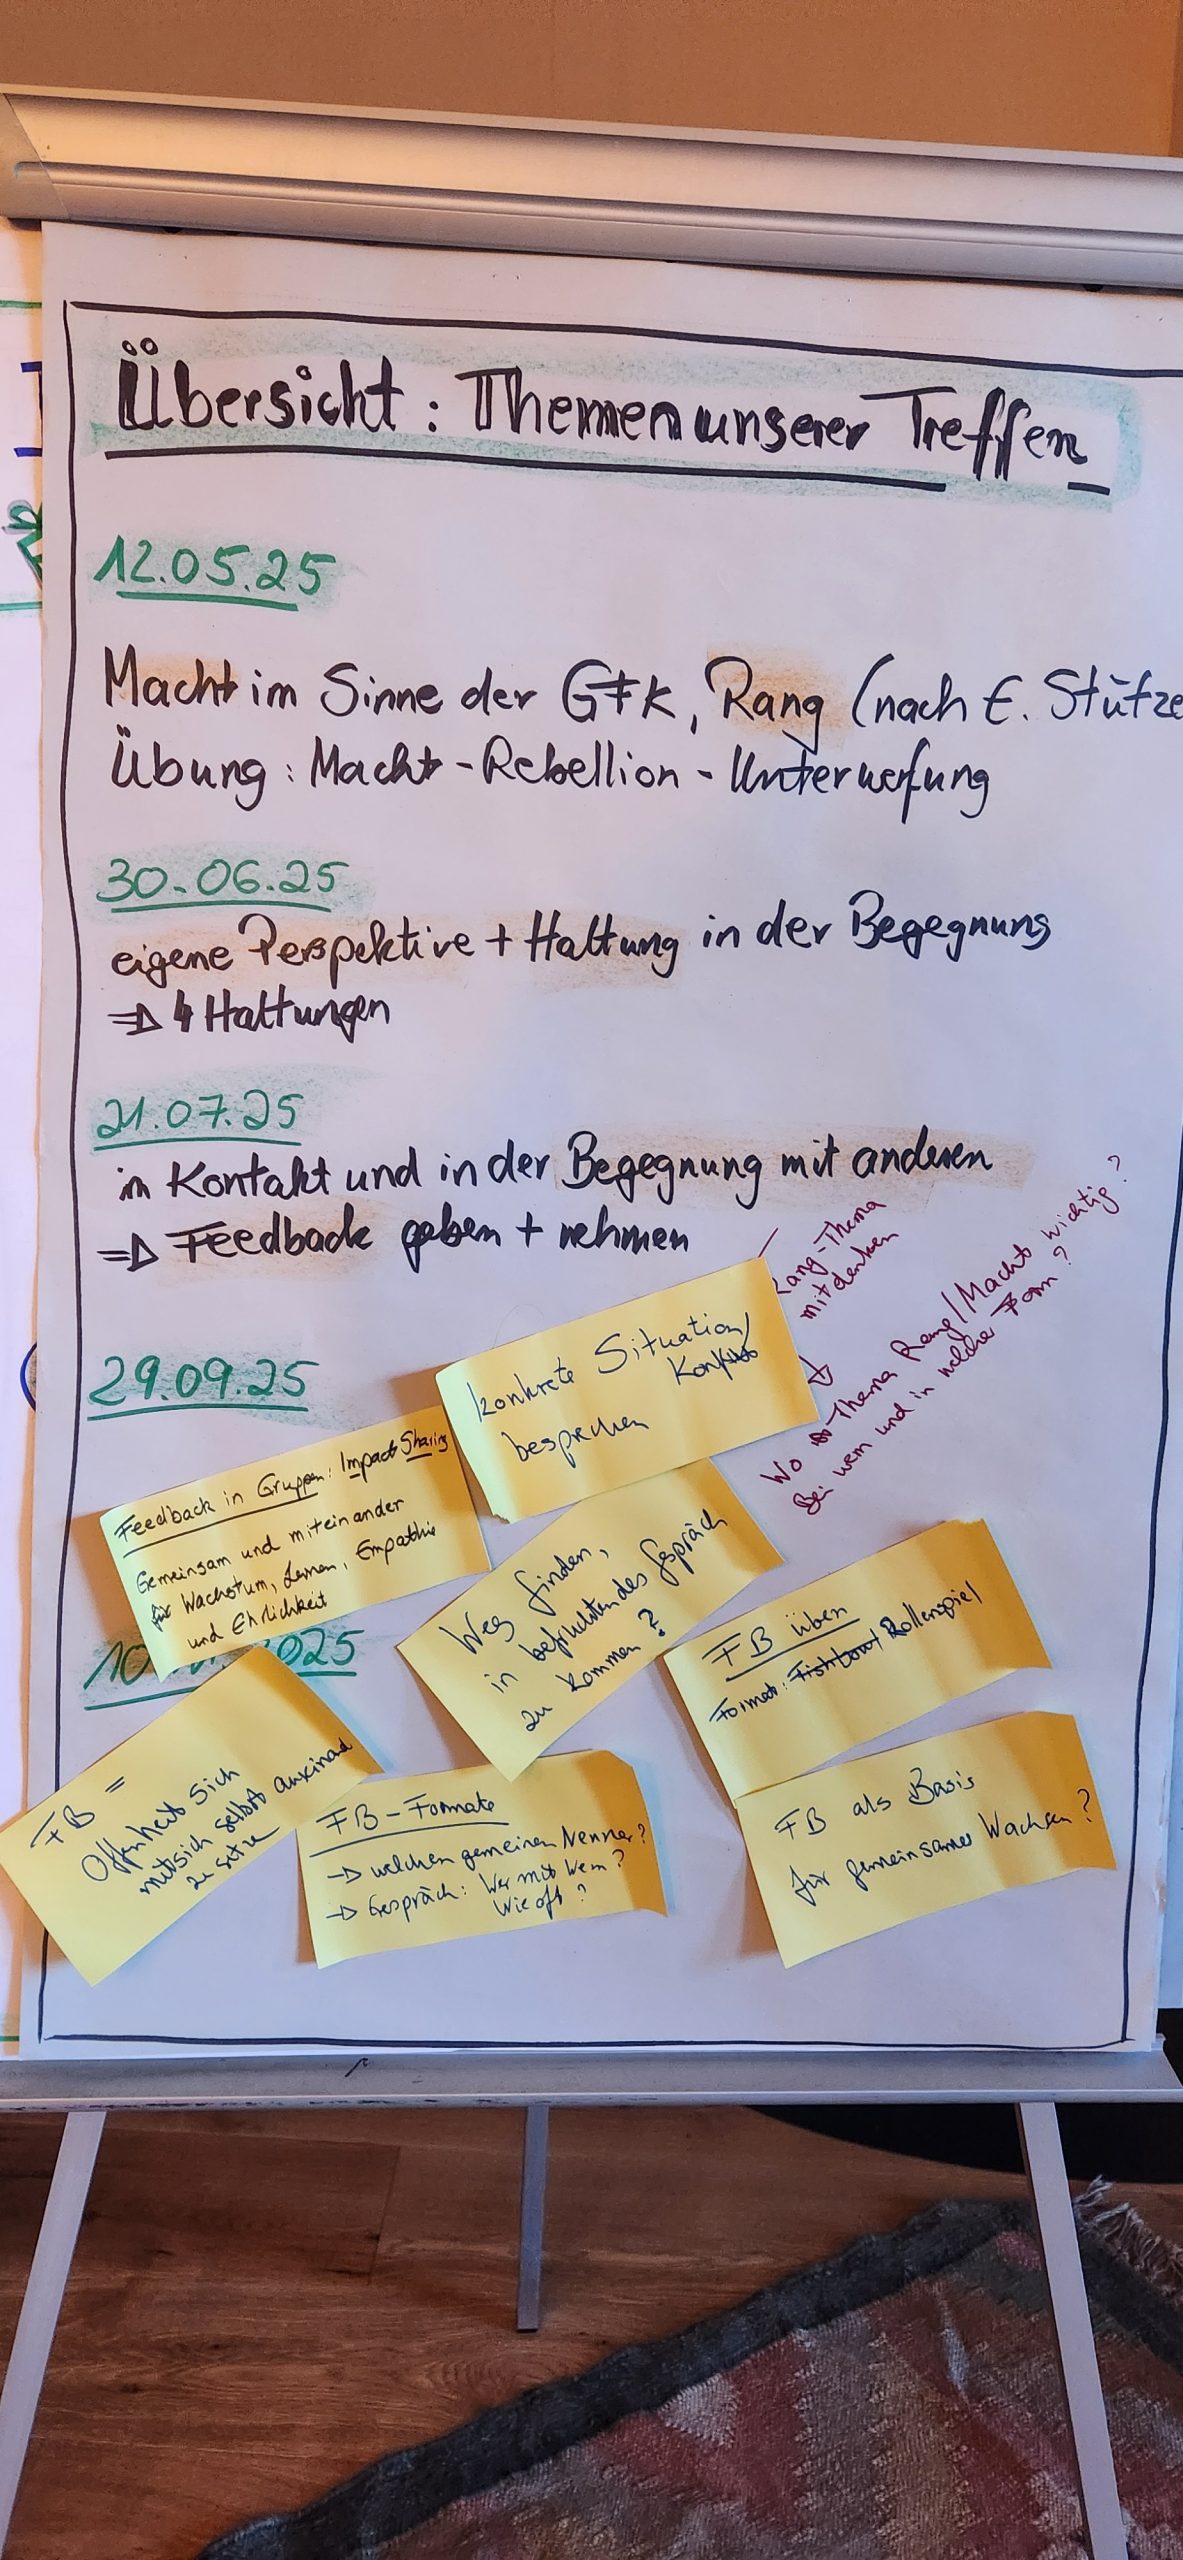 Übersicht: Themen unserer Treffen
12.05.25
Macht im Sinne der GFK, Rang (nach E. Stütze
Übung: Macht - Rebellion - Unterwerfung
30.06.25
eigene Perspektive + Haltung in der Begegnung
⇒ 4 Haltungen
21.07.25
in Kontakt und in der Begegnung mit anderen
⇒ Feedback geben + nehmen
Rang-Thema
mitdenken
Wo Thema Rang/Macht wichtig?
Bei wem und in welcher Form?
29.09.25
konkrete Situation/
besprechen
Feedback in Gruppen: Impact Sharing
Gemeinsam und miteinander
für Wachstum, Lernen, Empathie
und Ehrlichkeit
Weg finden,
in befruchtendes Gespräch
zu kommen?
10 025
FB üben
Format: Fishbowl Rollenspiel
FB =
Offenheit sich
mit sich selbst
zu setzen
FB-Formate
→ welchen gemeinen Nenner?
→ Gespräch: Wer mit Wem?
Wie oft?
FB als Basis
für gemeinsames Wachsen?